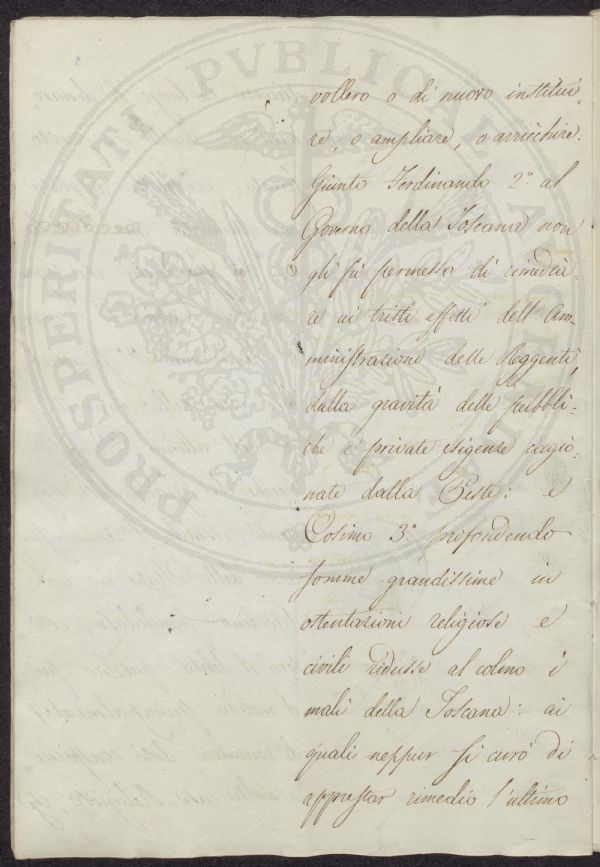 vollero o di nuovo institui-
re, o ampliare, o arricchire.
Giunto Ferdinando 2.° al
Governo della Toscana non
gli fù permesso di rimedia-
re ai tristi effetti dell'Am-
ministrazione delle Reggenti,
dalla gravità delle pubbli-
che e private esigenze cagio-
nate dalla Peste: e
Cosimo 3.° profondendo
somme grandissime in
ostentazioni religiose e
civili ridusse al colmo i
mali della Toscana: ai
quali neppur si curò di
apprestar rimedio l'ultimo
PROSPERITATI PUBLICAE AUGENDAE